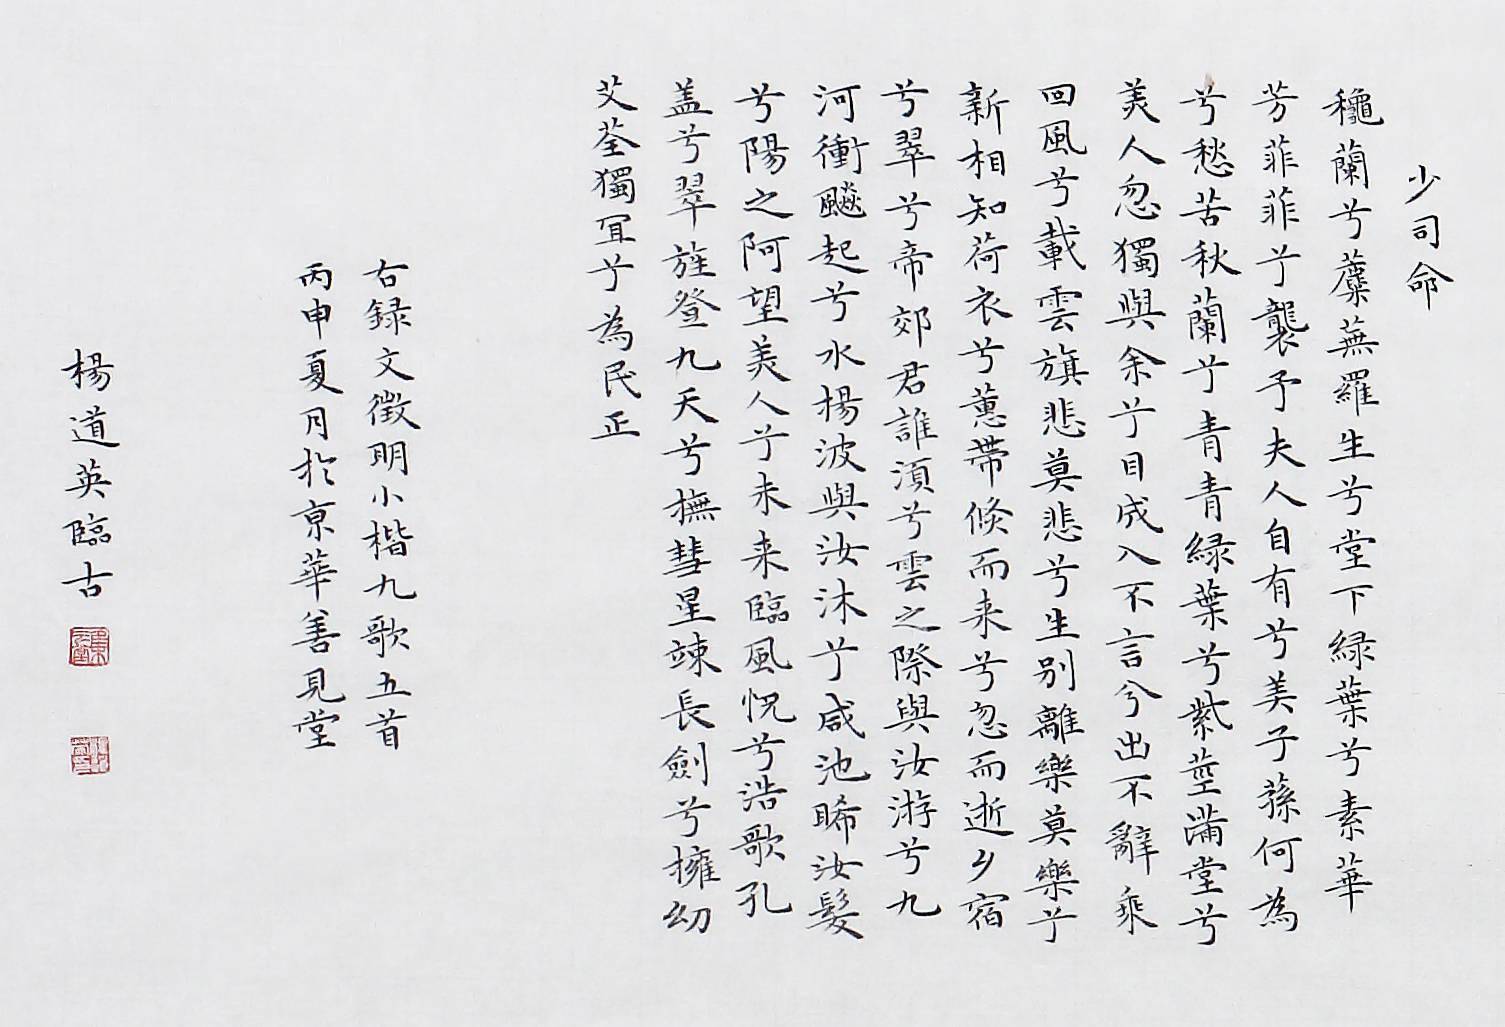 少司命
穐蘭兮蘪蕪羅生兮堂下緑葉兮素華
芳菲菲兮襲予夫人自有兮美子蓀何為
兮愁苦秋蘭兮青青緑葉兮紫莖滿堂兮
美人忽獨與余兮目成入不言兮出不辭乘
回風兮載雲旗悲莫悲兮生别離樂莫樂兮
新相知荷衣兮蕙帶倏而来兮忽而逝夕宿
兮翠兮帝郊君誰湏兮雲之際與汝游兮九
河衝飈起兮水楊波與汝沐兮咸池晞汝髮
兮陽之阿望美人兮未来臨風怳兮浩歌孔
盖兮翠旌登九天兮撫彗星竦長劍兮擁幼
艾荃獨冝兮為民正
右録文徵明小楷九歌五首
丙申夏月於京華善見堂
楊道英臨古